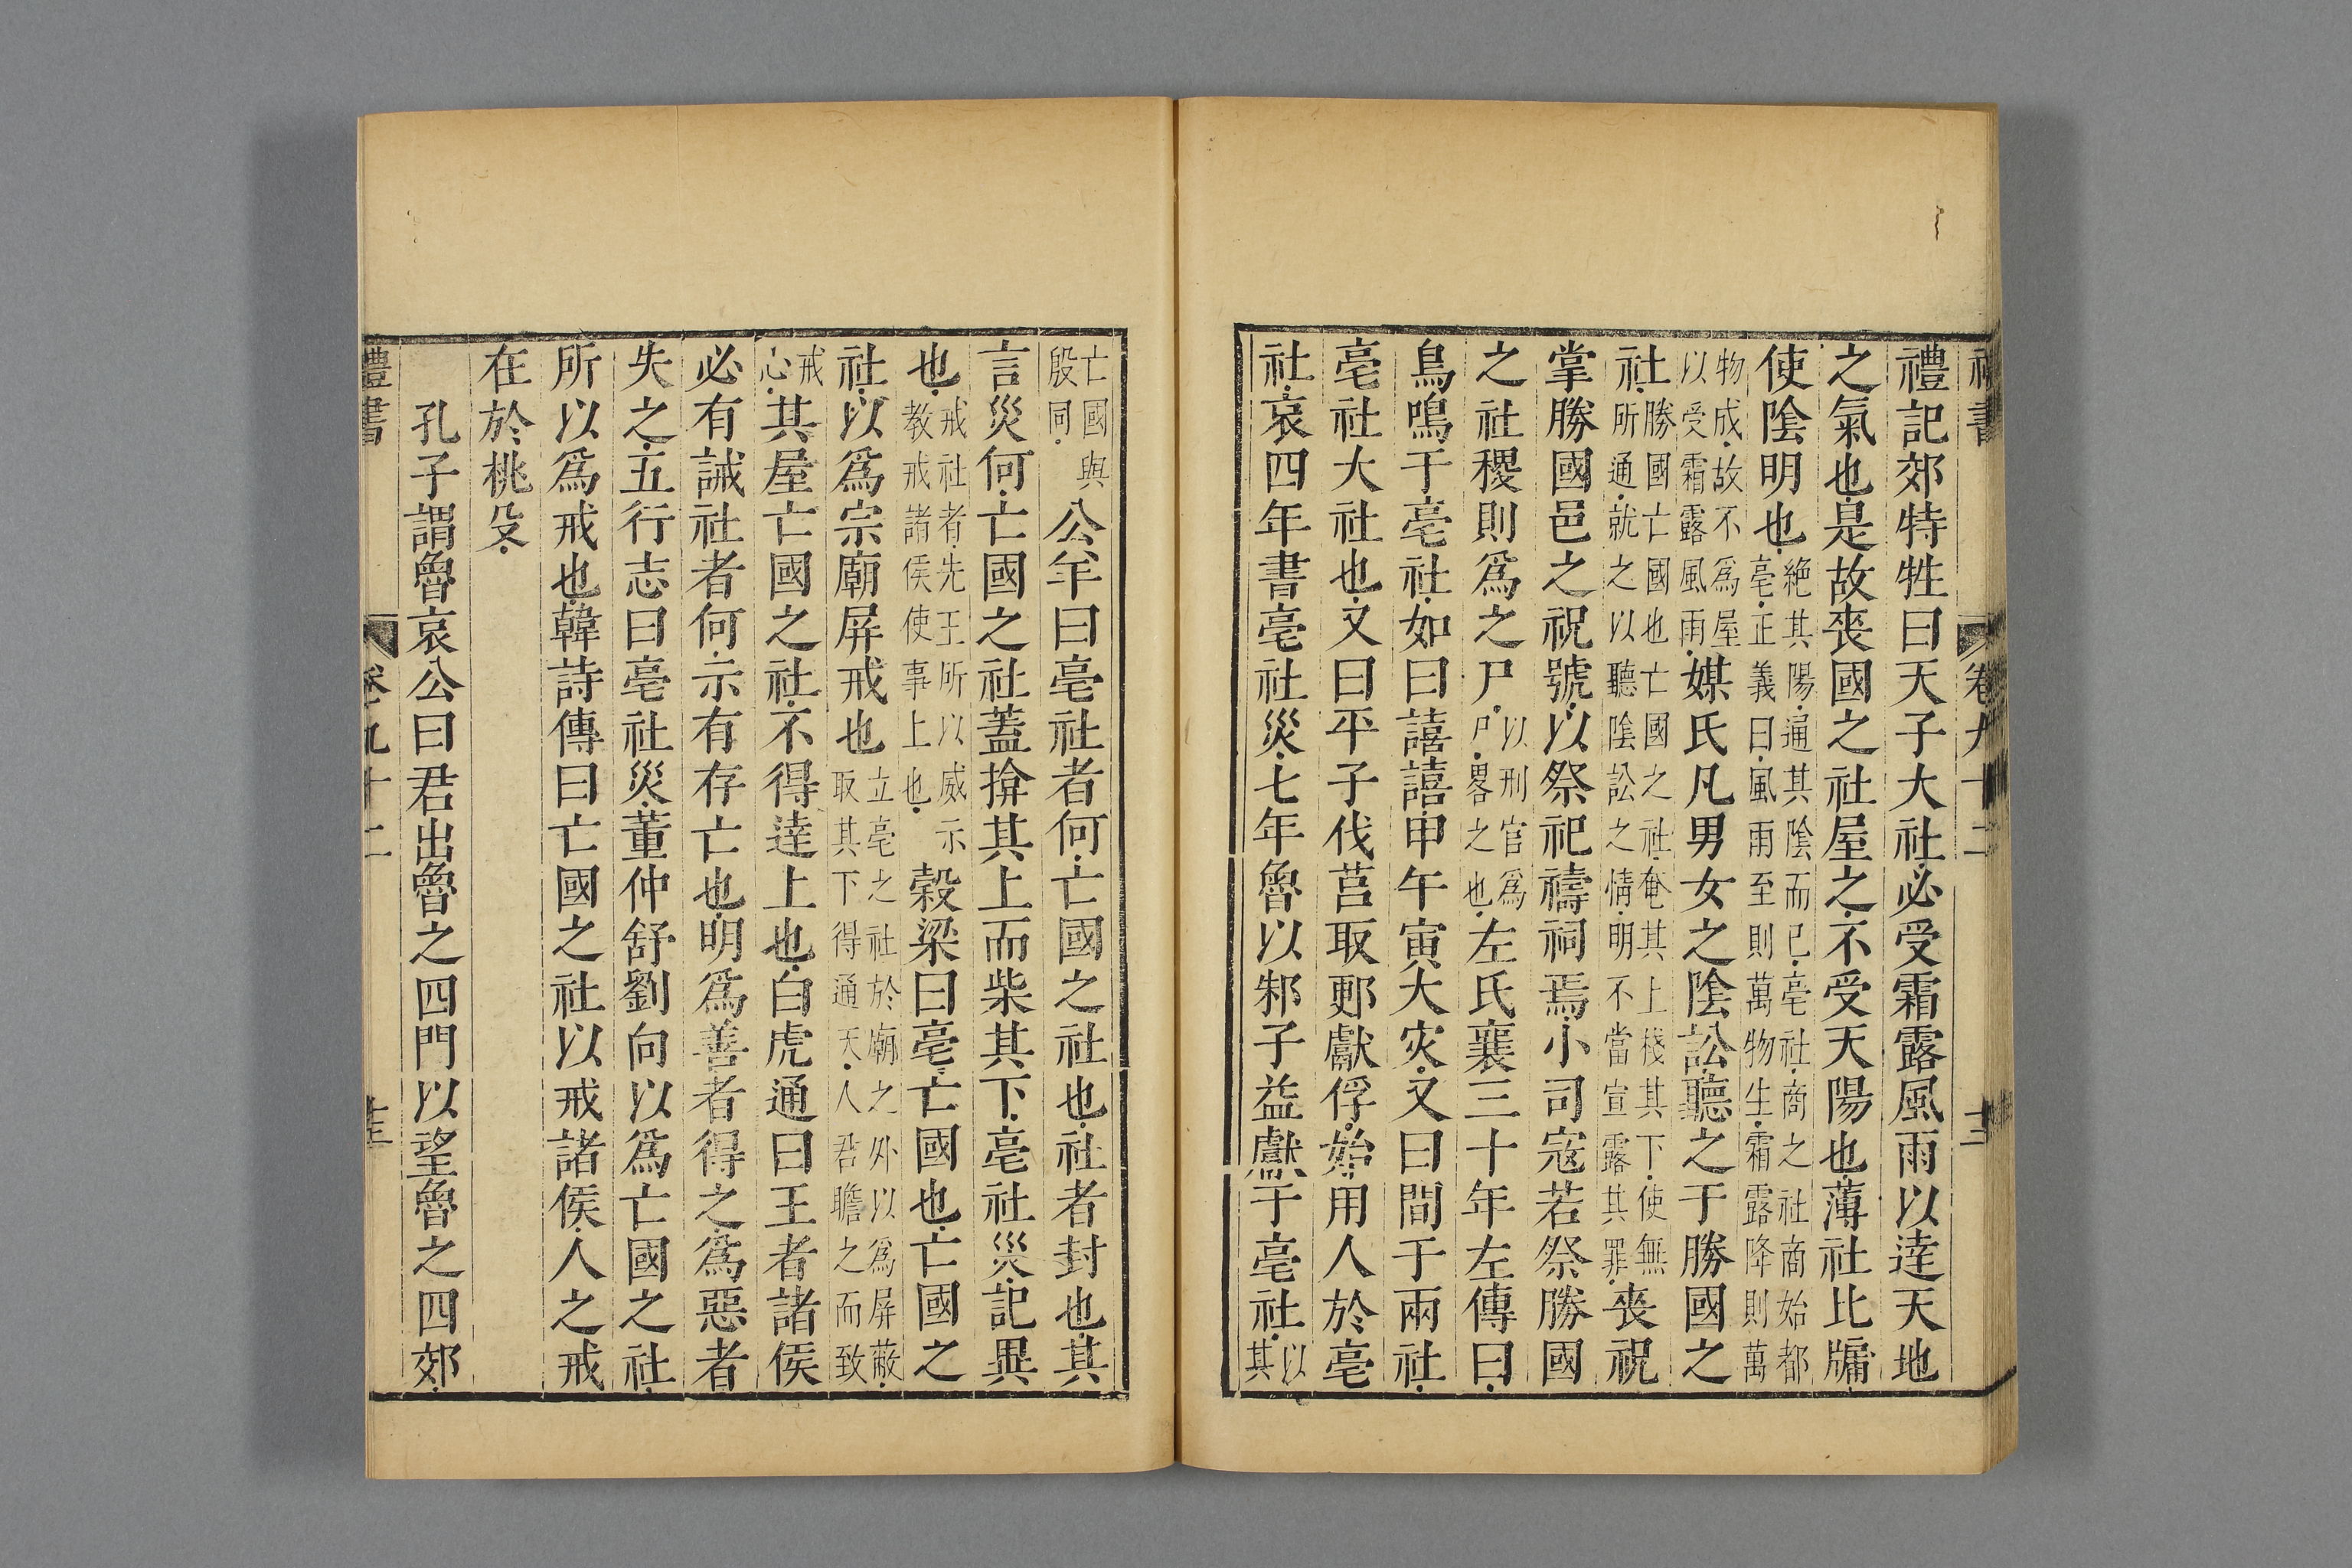 禮記郊特牲曰天子大社必受霜露風雨以逹天地
之氣也是故䘮國之社屋之不受天陽也薄社比牖
使陰明也絶其陽通其陰而已亳社商之社商始都亳正義曰風雨至則萬物生霜露降則萬
物成故不爲屋以受霜露風雨媒氏凡男女之陰訟聽之于勝國之
社勝國亡國也亡國之社奄其上棧其下使無所通就之以聽陰訟之情明不當宣露其罪喪祝
掌勝國邑之祝號以祭祀禱祠焉小司寇若祭勝國
之社稷則爲之尸以刑官爲尸畧之也左氏襄三十年左傳曰
鳥鳴于亳社如曰譆譆甲午寅大灾又曰間于兩社
亳社大社也又曰平子伐莒取郠獻俘始用人於亳
社哀四年書亳社災七年魯以邾子益獻于亳社以其
亡國與殷同公羊曰亳社者何亡國之社也社者封也其
言災何亡國之社蓋揜其上而柴其下亳社災記異
也戒社者先王所以威示教戒諸侯使事上也榖梁曰亳亡國也亡國之
社以爲宗廟屏戒也立亳之社於廟之外以爲屏蔽取其下得通天人君瞻之而致
戒心其屋亡國之社不得逹上也白虎通曰王者諸侯
必有誡社者何示有存亡也明爲善者得之爲惡者
失之五行志曰亳社災董仲舒劉向以爲亡國之社
所以爲戒也韓詩傳曰亡國之社以戒諸侯人之戒
在於桃殳
孔子謂魯哀公曰君出魯之四門以望魯之四郊
禮書 卷九十二